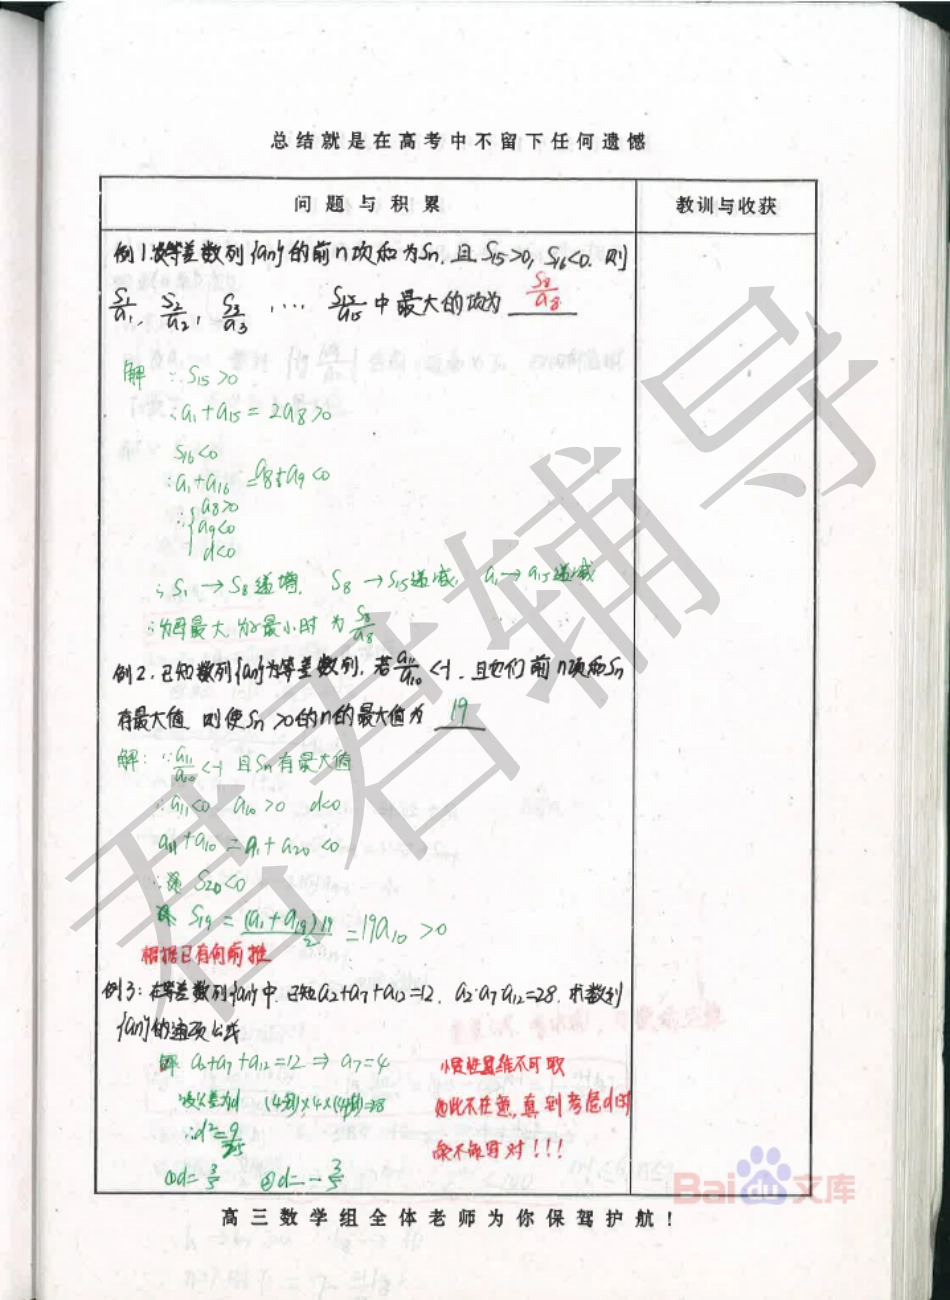 总结就是在高考中不留下任何遗憾
问题与积累 教训与收获
例1.等差数列{an}的前n项和为Sn,且S15>0,S16<0.则
S1/a1, S2/a2, S3/a3, … S15/a15中最大的项为 S8/a8
解 ∵S15>0
∴a1+a15=2a8>0
S16<0
∴a1+a16=a8+a9<0
∴{a8>0
a9<0
d<0
∴S1→S8递增. S8→S15递减, a1→a15递减
∴分母最大 分子最小时为 S8/a8
例2.已知数列{an}为等差数列,若a11/a10<-1,且它们前n项和Sn
有最大值 则使Sn>0的n的最大值为 19
解:∵a11/a10<-1 且Sn有最大值
∴a11<0 a10>0 d<0
a11+a10=a1+a20<0
∴S20<0
S19=(a1+a19)19/2=19a10>0
根据已有向前推
例3:在等差数列{an}中,已知a2+a7+a12=12, a2·a7·a12=28,求数列
{an}的通项公式
解 a2+a7+a12=12⇒a7=4 惯性思维不可取
设公差为d (4-5d)×4×(4+5d)=28 如此不在意,直到考虑d时
∴d²=9/25 都不能写对!!!
①d=3/5 ②d=-3/5
高三数学组全体老师为你保驾护航!
君君辅导
Bai du 文库